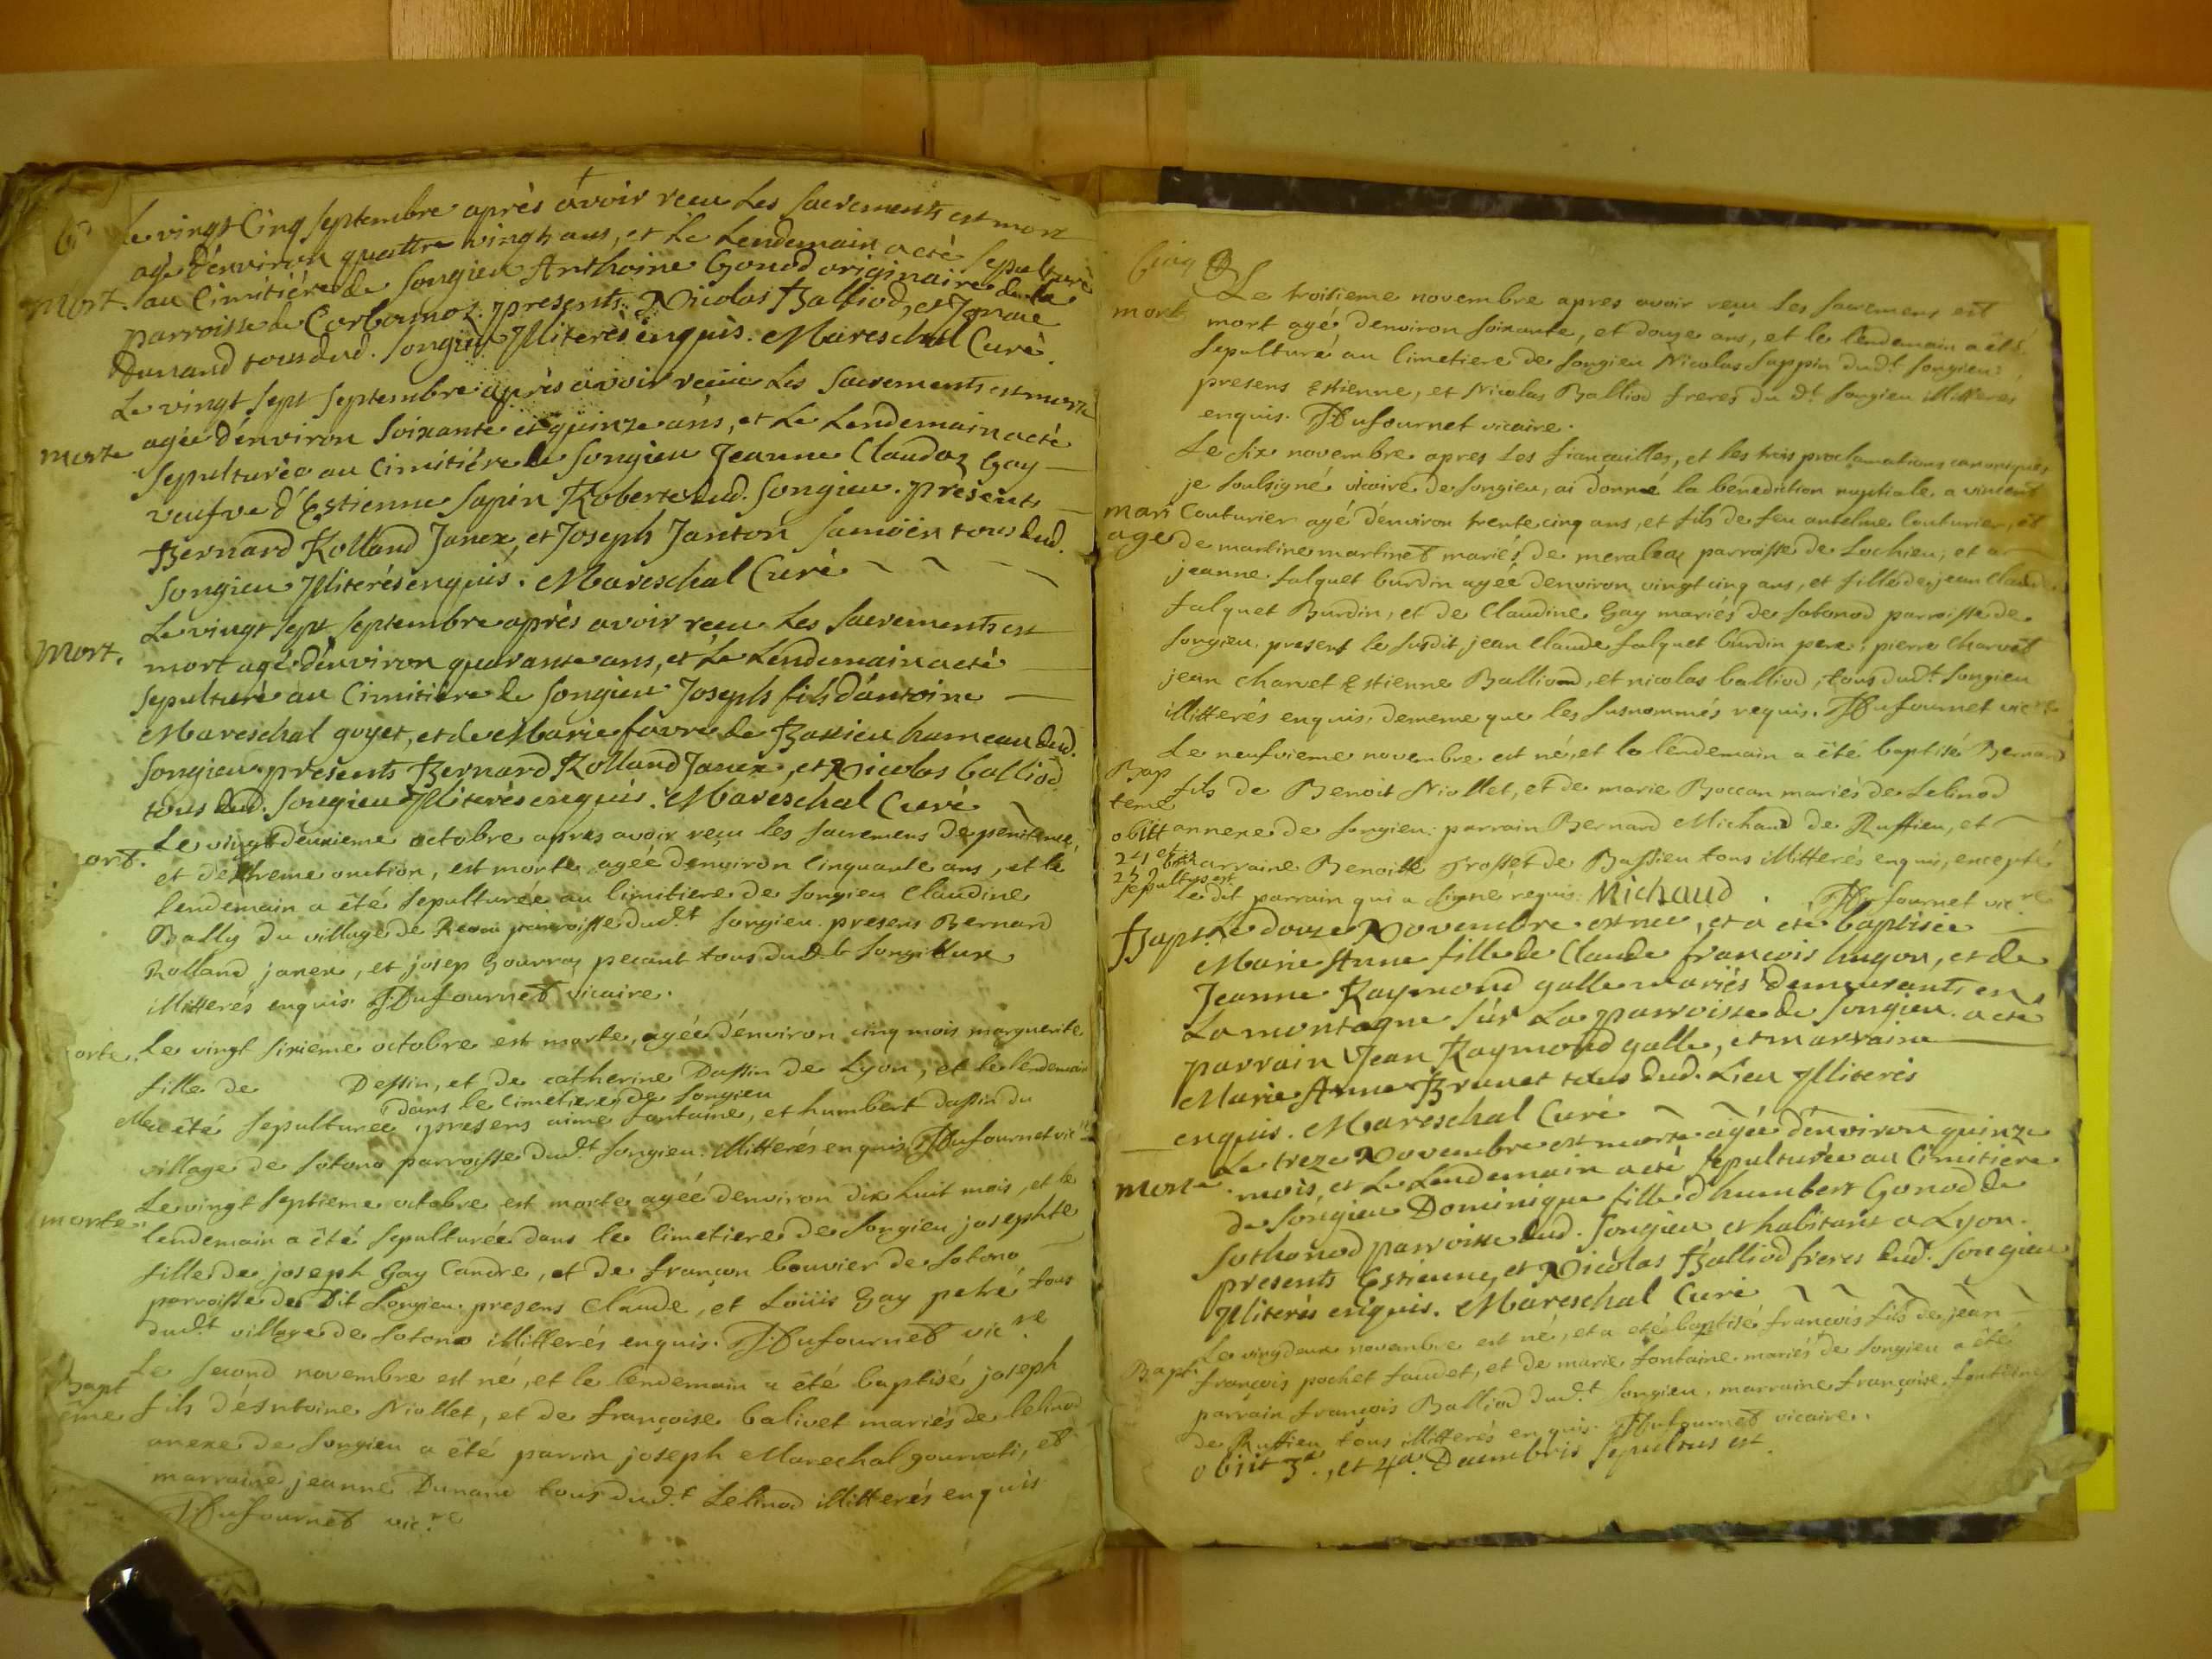 Le vingt Cinq septembre après avoir reçu Les sacrements est mort
agé d'environ quattre vingts ans, et Le Lendemain a eté sepulturé
mort. au Cimitière de Songieu Anthoine Gonod originaire de la
parroisse de Corbonoz. presents. Nicolas Balliod, et Ignace
Dunand tous dud. Songieu Illiterés enquis. Mareschal Curé.
Le vingt sept septembre après avoir reçüe Les sacrements est morte
morte agée d'environ soixante et quinze ans, et Le Lendemain a eté
sepulturée au Cimitière de Songieu Jeanne Claudaz Gay
veufve d'Estienne Sapin Roberte dud. Songieu. presents
Bernard Rolland Janex, et Joseph Janton tous dud.
Songieu Illiterés enquis. Mareschal Curé
Le vingt sept septembre après avoir reçu Les sacrements est
mort. mort agé d'environ quarante ans, et Le Lendemain a eté
sepulturé au Cimitière de Songieu Joseph fils d'antoine
Mareschal goyet, et de Marie favre de Bassieu hameau dud.
Songieu presents Bernard Rolland Janex, et Nicolas balliod
tous dud. Songieu Illiterés enquis. Mareschal Curé
ort. Le vingt deuxieme octobre apres avoir reçu les sacremens de penitence,
et d'extreme onction, est morte agéé denviron cinquante ans, et le
lendemain a été sepulturéé au cimitiere de songieu Claudine
Bally du village de parroisse dud.t songieu. presens Bernard
Rolland janex, et josep Gourraz tous dud.t
illitteres enquis. Dufournet vicaire.
orte. Le vingt sixième octobre est morte, agéé d'environ cinq mois marguerite
fille de Dessin, et de catherine Dassin de Lyon, et le lendemain
dans le cimetiere de songieu
a été sepulturéé presens aimé fontaine, et humbert dassin du
village de sotono parroisse dud.t songieu. illitterés enquis Dufournet vic.re
Le vingt septieme octobre est morte agéé denviron dix huit mois, et le
morte. lendemain a été sepulturéé dans le cimetiere de songieu josephte
fille de joseph Gay Candre, et de françon bouvier de sotono
parroisse de Dit songieu. presens Claude, et Loüis Gay pehé tous
dud.t village de sotono illitterés enquis. Dufournet vic.re
Le second novembre est né, et le lendemain a été baptisé joseph
Bapt
ême fils d'Antoine Niollet, et de françoise balivet mariés de lelinod
anexe de songieu a été parrin joseph Marechal gourrati, et
marraine jeanne Dunand tous dud.t Lelinod illitterés enquis
Dufournet vic.re
Cinq
Le troisieme novembre apres avoir reçu les sacremens est
mort mort agé denviron soixante, et douze ans, et le lendemain a été
sepulturé au cimetiere de songieu Nicolas Sappin dud.t songieu.
presens Estienne, et Nicolas Balliod freres du d.t songieu illitteres
enquis. Dufournet vicaire.
Le six novembre apres les fiançailles, et les trois proclamations canoniques
je soussigné vicaire de songieu, ai donné la benediction nuptiale a vincent
mari Couturier agé d'environ trente cinq ans, et fils de feu antelme Couturier, et
age de martine martinet mariés de meraleaz parroisse de Lochieu; et a
jeanne falquet burdin agéé denviron vingt cinq ans, et fille de jean Claude
falquet Burdin, et de Claudine Gay mariés de sotonod parroisse de
songieu. present le susdit jean Claude falquet burdin pere, pierre Charvet
jean charvet Estienne Balliod, et nicolas balliod, tous dud.t songieu
illitterés enquis, dememe que les susnommés requis. Dufournet vic.re
Le neufvieme novembre est né, et le lendemain a été baptisé Bernard
Bap
teme fils de Benoit Niollet, et de marie Boccon mariés de Lelinod
obiit annexe de songieu: parrain Bernard Michaud de Ruffieu, et
24 et marraine Benoitte Grosset de Bassieu tous illitterés enquis, excepté
25 9bris
sepultus est le dit parrain qui a signé requis. Michaud . Dufournet vic.re
Bapt. Le douze Novembre est neé, et a eté baptisée
Marie Anne fille de Claude françois hugon, et de
Jeanne Raymond galle mariés demeurants en
La montagne sur La parroisse de songieu. a eté
parrain Jean Raymond galle, et marraine
Marie Anne Brunet tous dud. Lieu Illiterés
enquis. Mareschal Curé
Le treze Novembre est morte agée d'environ quinze
morte mois, et Le Lendemain a eté sepulturée au Cimitiere
de Songieu Dominique fille d'humbert Gonod de
Sothonod parroisse dud. Songieu et habitant a Lyon.
presents Estienne, et Nicolas Balliod freres dud. Songieu
Illiterés enquis. Mareschal Curé
Le vingdeux novembre est né, et a eté baptisé francois fils de jean
Bapt. françois pochet faudet, et de marie fontaine mariés de songieu a été
parrain françois Balliod dud.t songieu, marraine françoise fontaine
de Ruffieu tous illitterés enquis. Dufournet vicaire.
obiit 3a., et 4a. Decembris sepultus est.